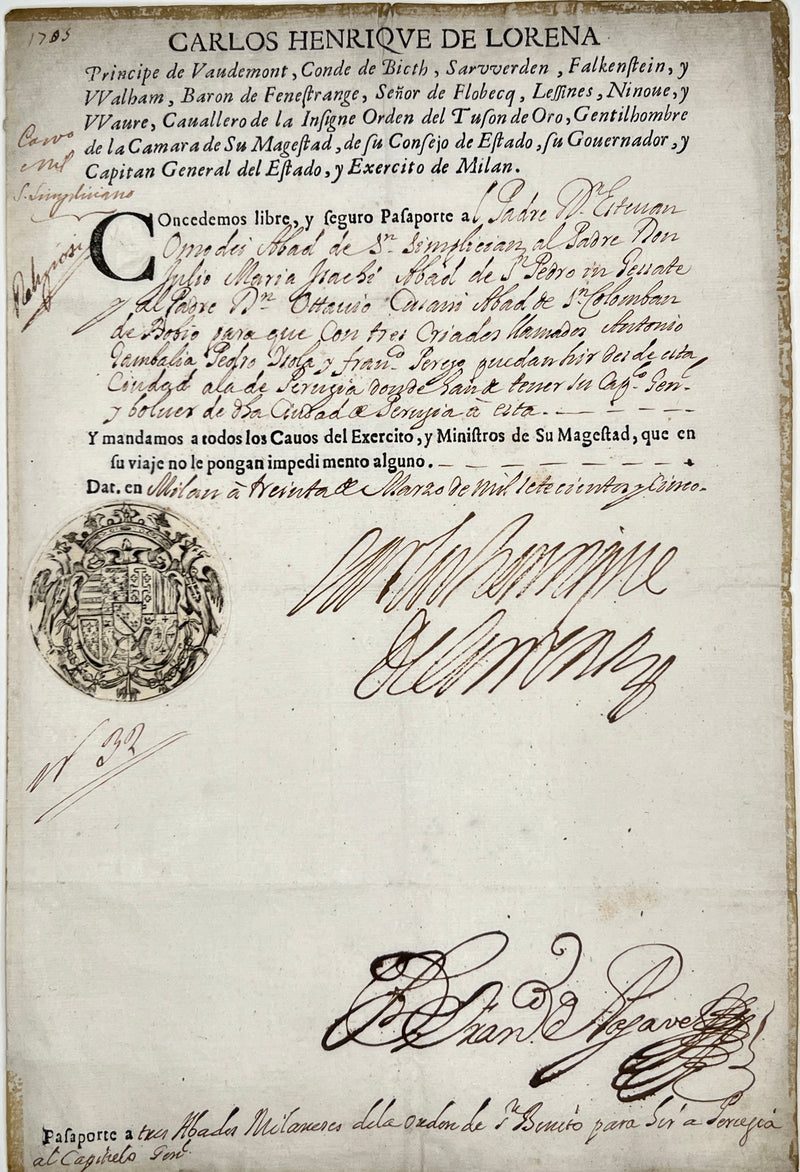 1705
CARLOS HENRIQVE DE LORENA
Principe de Vaudemont, Conde de Bicth, Sarvverden, Falkenſtein, y
VValham, Baron de Feneſtrange, Señor de Flobecq, Leſſines, Ninoue, y
VVaure, Cauallero de la Inſigne Orden del Tuſon de Oro, Gentilhombre
de la Camara de Su Mageſtad, de su Conſejo de Eſtado, ſu Gouernador, y
Capitan General del Eſtado, y Exercito de Milan.
Mil
S. Simpliciano
Religiosi
Concedemos libre, y ſeguro Paſaporte al Padre Dn Esteuan
Omodei Abad de Sn Simplician, al Padre Don
Julio Maria Abad de Sn Pedro in Gessate
y al Padre Dn Ottauio Cusani Abad de Sn Colomban
de Bobio para que con tres Criados llamados Antonio
Pedro Isola y Franco Perego puedan hir desde esta
Ciudad a la de Perugia donde han de tener su Capo Genl
y boluer de dha Ciudad de Perugia à esta.
Y mandamos a todos los Cauos del Exercito, y Ministros de Su Mageſtad, que en
ſu viaje no le pongan impedimento alguno.
Dat. en Milan à treinta de Marzo de mil setecientos y Cinco.
Carlos Henrrique
de Lorena
No 32
Dn Fran
Paſaporte a tres Abades Milaneses de la orden de Sn Benito para hir a Perugia
al Capitulo Genl